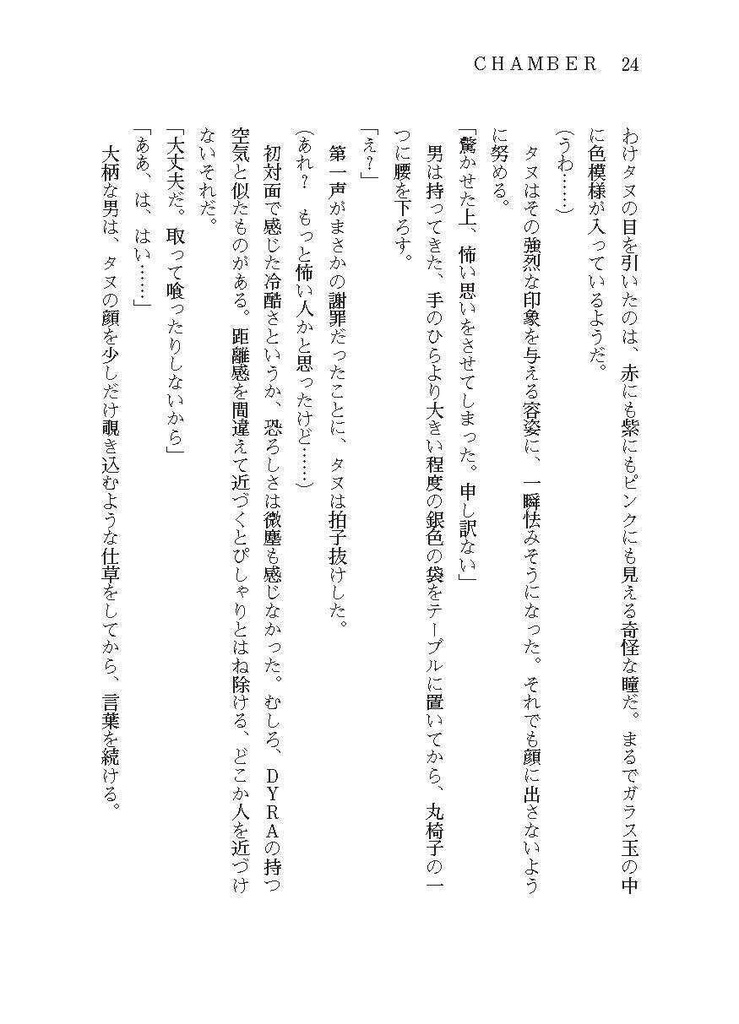 CHAMBER 24
わけタヌの目を引いたのは、赤にも紫にもピンクにも見える奇怪な瞳だ。まるでガラス玉の中
に色模様が入っているようだ。
(うわ……)
タヌはその強烈な印象を与える容姿に、一瞬怯みそうになった。それでも顔に出さないよう
に努める。
「驚かせた上、怖い思いをさせてしまった。申し訳ない」
男は持ってきた、手のひらより大きい程度の銀色の袋をテーブルに置いてから、丸椅子の一
つに腰を下ろす。
「え？」
第一声がまさかの謝罪だったことに、タヌは拍子抜けした。
(あれ？　もっと怖い人かと思ったけど……)
初対面で感じた冷酷さというか、恐ろしさは微塵も感じなかった。むしろ、ＤＹＲＡの持つ
空気と似たものがある。距離感を間違えて近づくとぴしゃりとはね除ける、どこか人を近づけ
ないそれだ。
「大丈夫だ。取って喰ったりしないから」
「ああ、は、はい……」
大柄な男は、タヌの顔を少しだけ覗き込むような仕草をしてから、言葉を続ける。